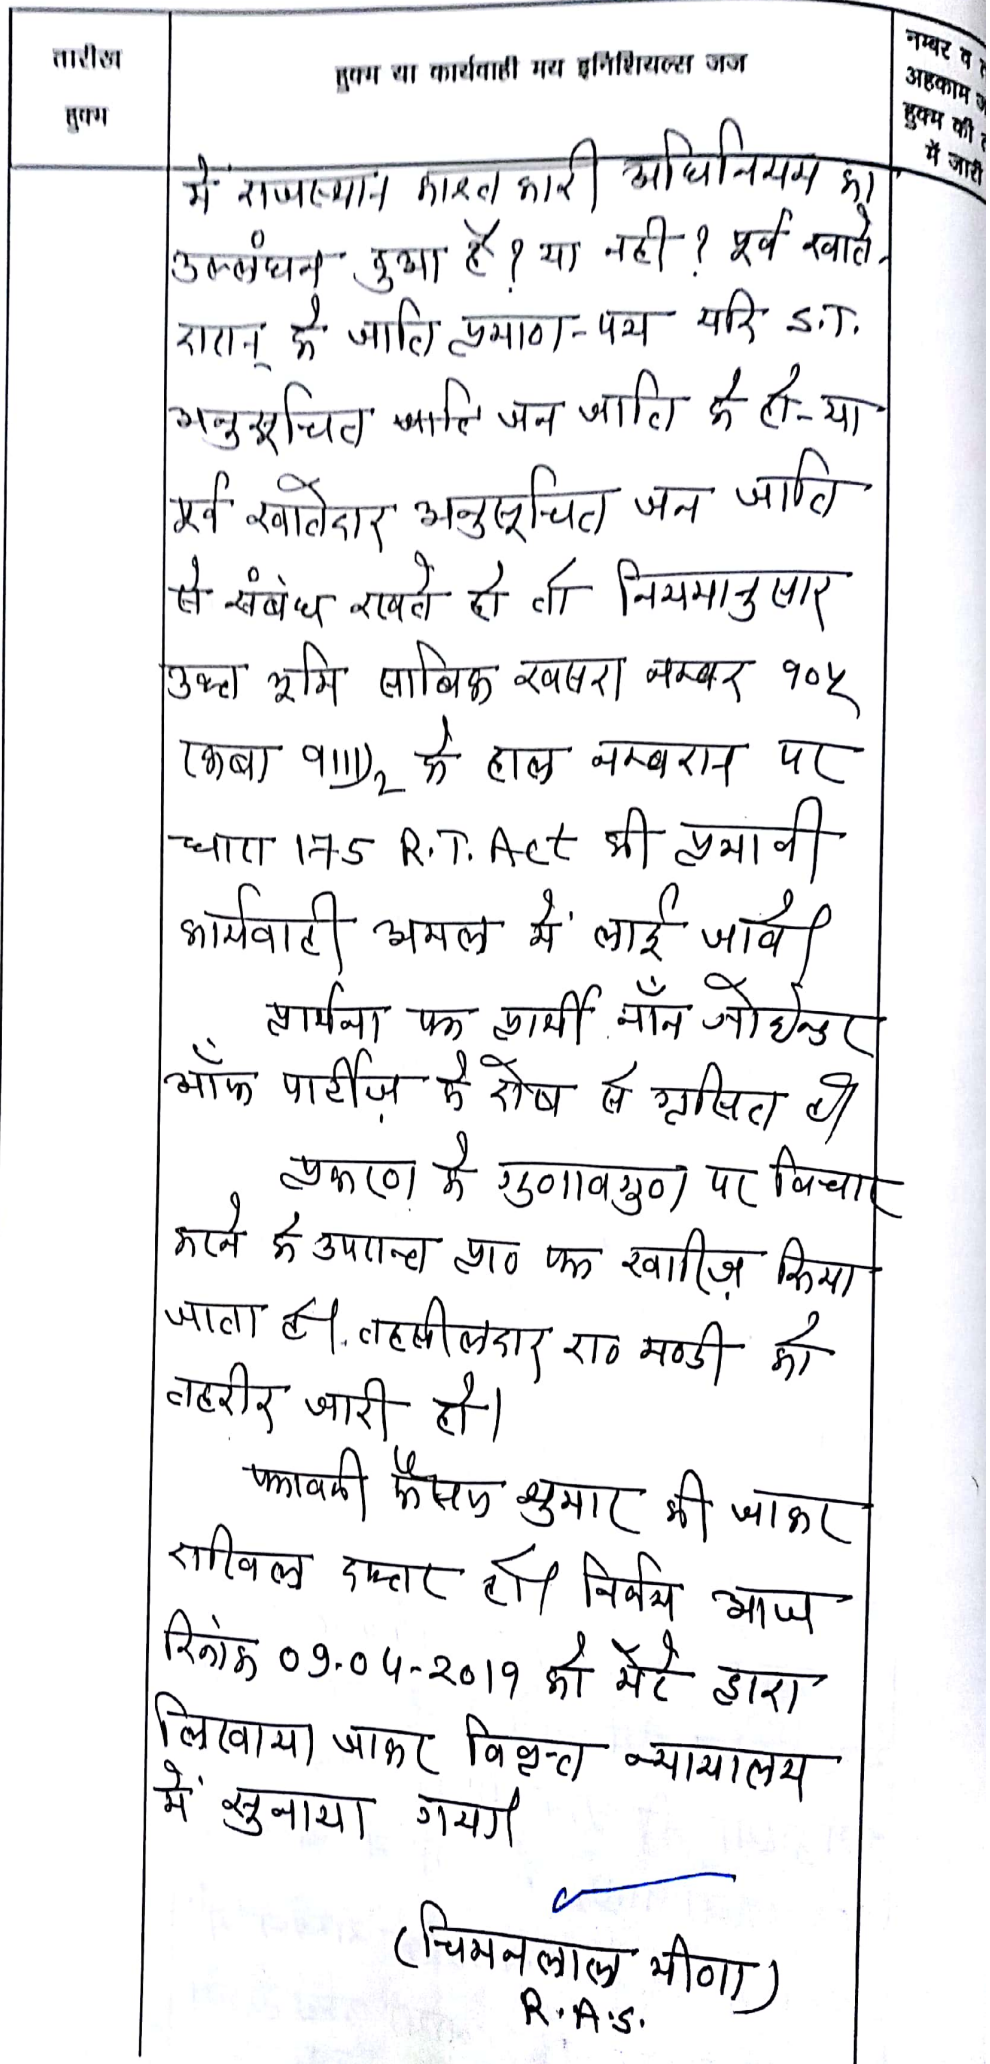 तारीख
हुक्म
हुक्म या कार्यवाही मय इनिशियल्स जज
नम्बर व
अहकाम
हुक्म की
में जारी
में राजस्थान काश्तकारी अधिनियम का
उल्लंघन हुआ है? या नही? पूर्व खाते-
दारान् के जाति प्रमाण-पत्र यदि S.T.
अनुसूचित जाति जन जाति के हो-या
पूर्व खातेदार अनुसूचित जन जाति
से संबंध रखते हो तो नियमानुसार
उक्त भूमि साबिक खसरा नम्बर १०५
रकबा के हाल नम्बरान पर
धारा 175 R.T. Act की प्रभावी
कार्यवाही अमल में लाई जावे।
प्रार्थना पत्र प्रार्थी नॉन जोइन्डर
ऑफ पार्टीज़ के दोष से ग्रसित है।
प्रकरण के गुणावगुण पर विचार
करने के उपरान्त प्रा० पत्र खारिज़ किया
जाता है। तहसीलदार रा० मण्डी को
तहरीर जारी हो।
पत्रावली फैसल शुमार की जाकर
दाखिल दफ्तर हो। निर्णय आज
दिनांक 09-04-2019 को मेरे द्वारा
लिखाया जाकर विवृत्त न्यायालय
में सुनाया गया।
(चिमनलाल मीणा)
R.A.S.